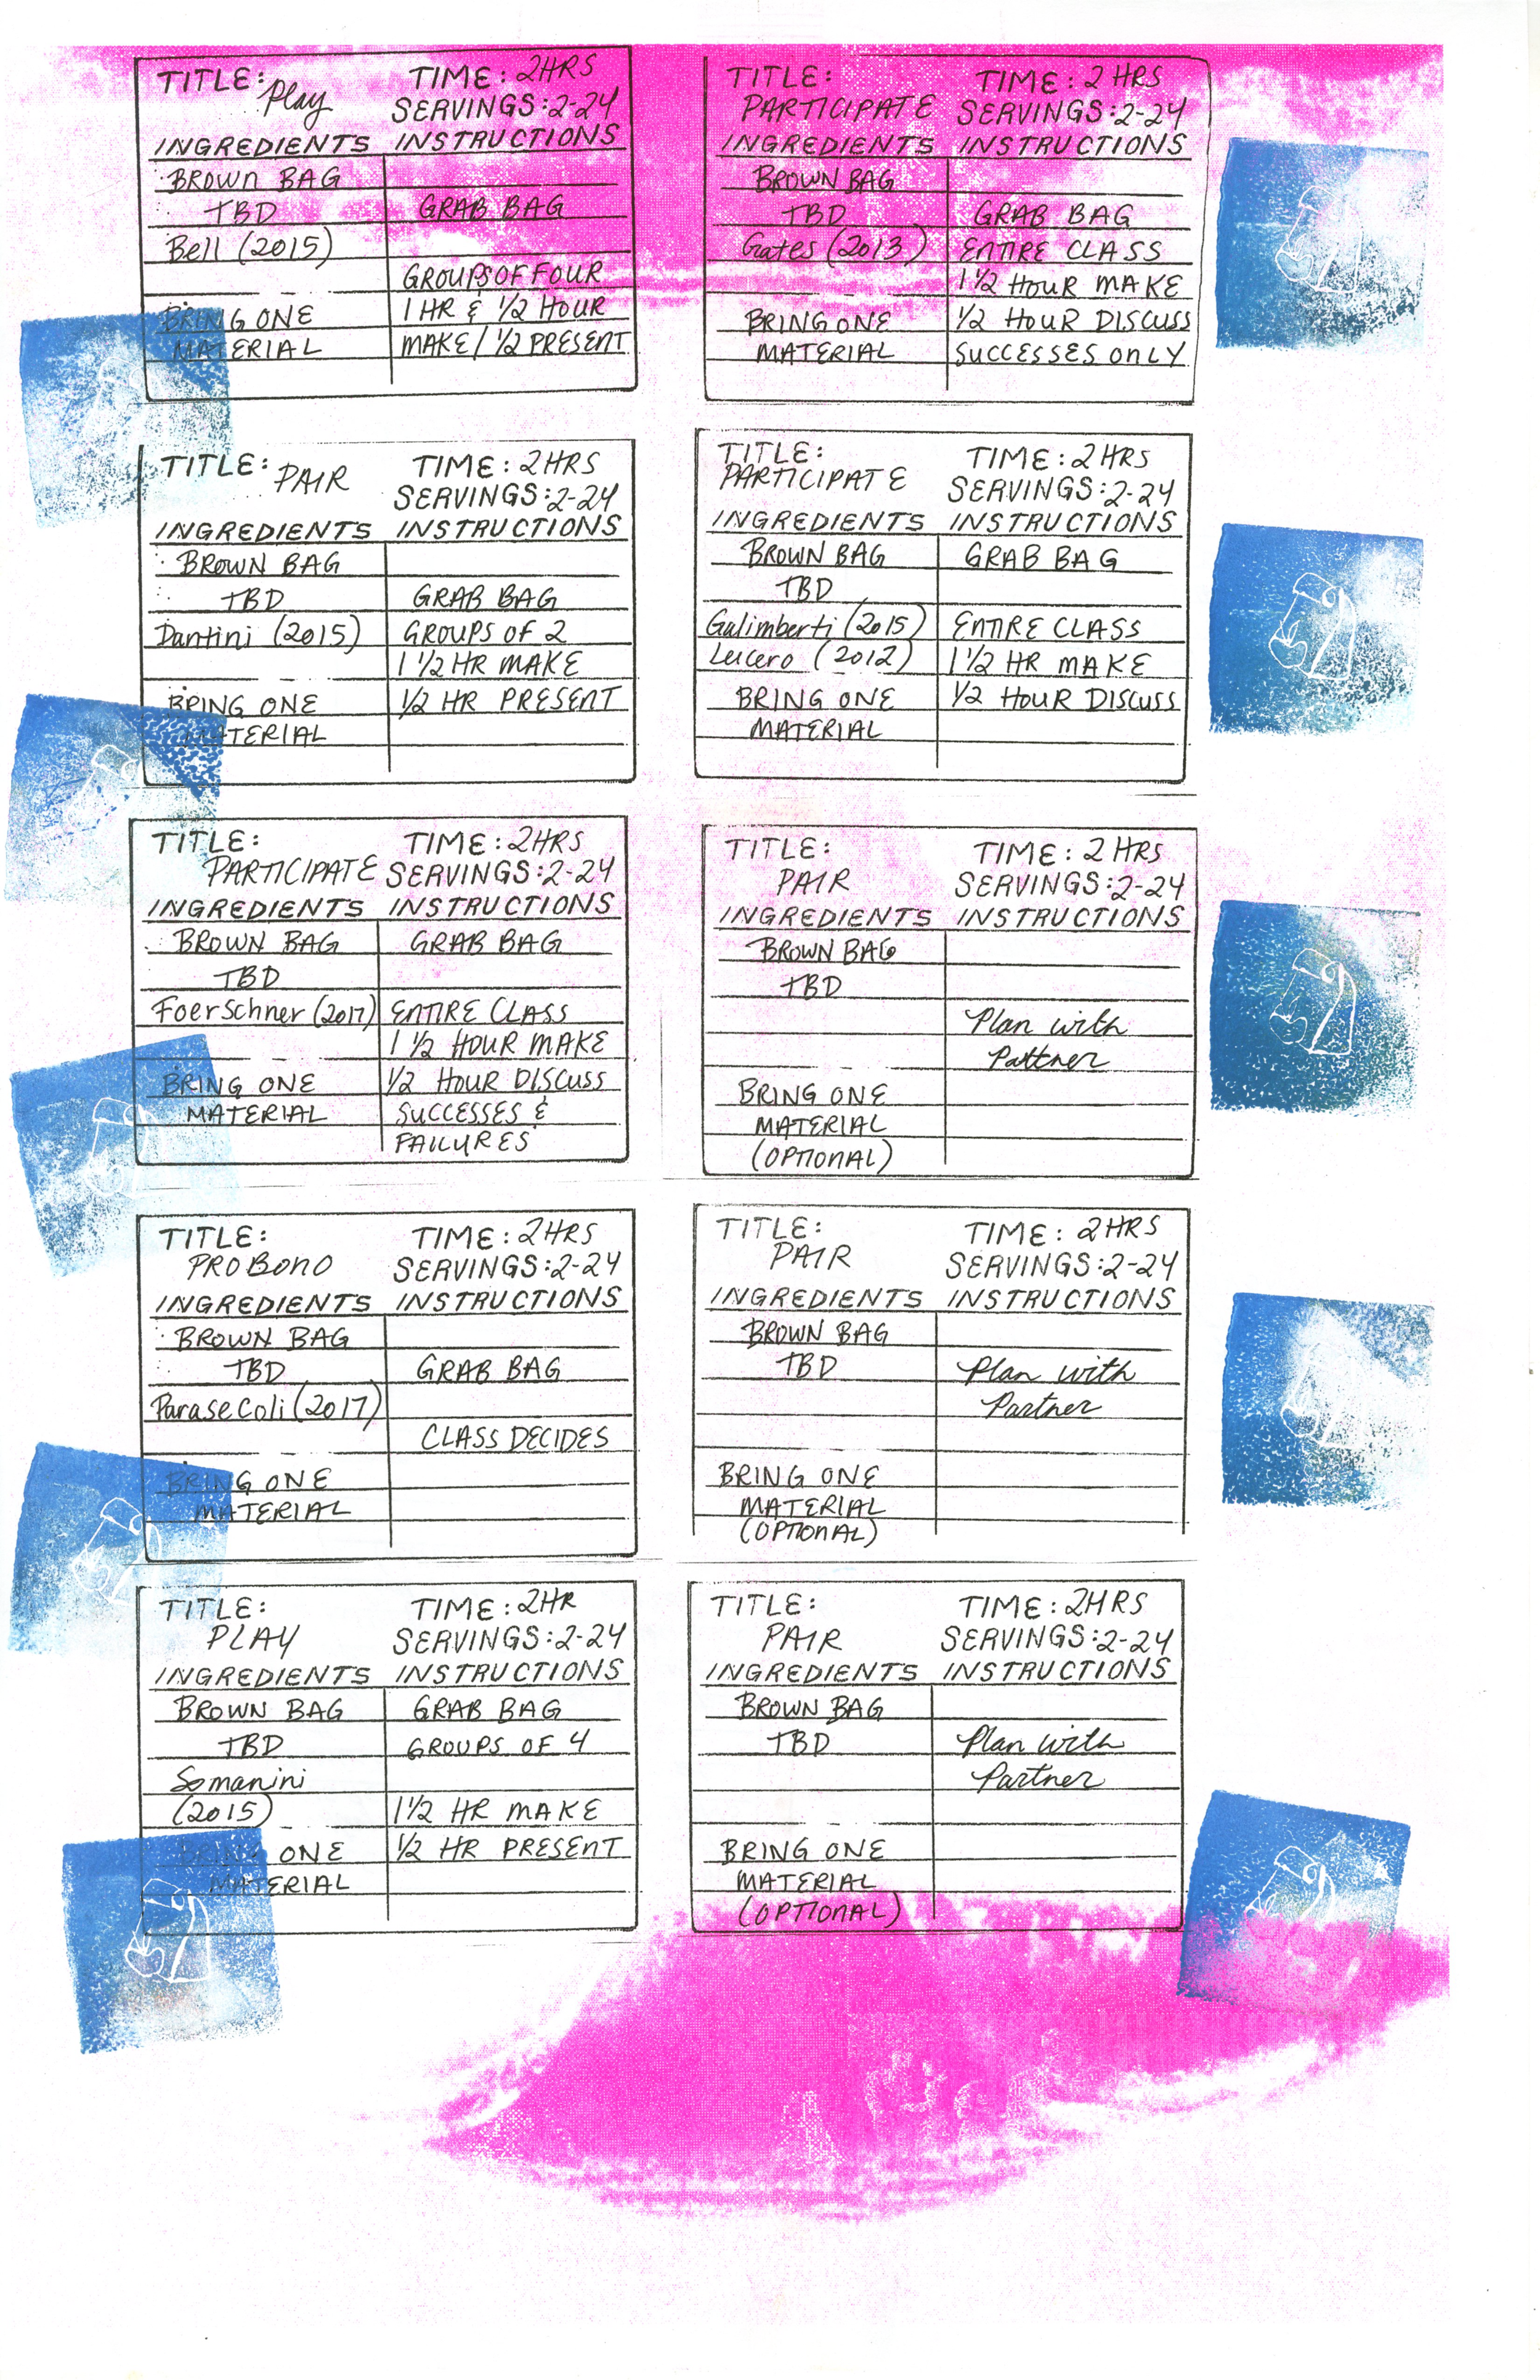 TITLE: Play
TIME: 2HRS
SERVINGS: 2-24
INGREDIENTS INSTRUCTIONS
BROWN BAG
TBD GRAB BAG
Bell (2015)
GROUPS OF FOUR
BRING ONE 1 HR & 1/2 HOUR
MATERIAL MAKE / 1/2 PRESENT
TITLE: PARTICIPATE
TIME: 2 HRS
SERVINGS: 2-24
INGREDIENTS INSTRUCTIONS
BROWN BAG
TBD GRAB BAG
Gates (2013) ENTIRE CLASS
1 1/2 HOUR MAKE
BRING ONE 1/2 HOUR DISCUSS
MATERIAL SUCCESSES ONLY
TITLE: PAIR
TIME: 2HRS
SERVINGS: 2-24
INGREDIENTS INSTRUCTIONS
BROWN BAG
TBD GRAB BAG
Dantini (2015) GROUPS OF 2
1 1/2 HR MAKE
BRING ONE 1/2 HR PRESENT
MATERIAL
TITLE: PARTICIPATE
TIME: 2HRS
SERVINGS: 2-24
INGREDIENTS INSTRUCTIONS
BROWN BAG GRAB BAG
TBD
Galimberti (2015) ENTIRE CLASS
Lucero (2012) 1 1/2 HR MAKE
BRING ONE 1/2 HOUR DISCUSS
MATERIAL
TITLE: PARTICIPATE
TIME: 2HRS
SERVINGS: 2-24
INGREDIENTS INSTRUCTIONS
BROWN BAG GRAB BAG
TBD
Foerschner (2017) ENTIRE CLASS
1 1/2 HOUR MAKE
BRING ONE 1/2 HOUR DISCUSS
MATERIAL SUCCESSES &
FAILURES
TITLE: PAIR
TIME: 2 HRS
SERVINGS: 2-24
INGREDIENTS INSTRUCTIONS
BROWN BAG
TBD
Plan with
Partner
BRING ONE
MATERIAL
(OPTIONAL)
TITLE: PRO BONO
TIME: 2HRS
SERVINGS: 2-24
INGREDIENTS INSTRUCTIONS
BROWN BAG
TBD GRAB BAG
Parasecoli (2017)
CLASS DECIDES
BRING ONE
MATERIAL
TITLE: PAIR
TIME: 2HRS
SERVINGS: 2-24
INGREDIENTS INSTRUCTIONS
BROWN BAG
TBD Plan with
Partner
BRING ONE
MATERIAL
(OPTIONAL)
TITLE: PLAY
TIME: 2HR
SERVINGS: 2-24
INGREDIENTS INSTRUCTIONS
BROWN BAG GRAB BAG
TBD GROUPS OF 4
Somanini
(2015) 1 1/2 HR MAKE
BRING ONE 1/2 HR PRESENT
MATERIAL
TITLE: PAIR
TIME: 2HRS
SERVINGS: 2-24
INGREDIENTS INSTRUCTIONS
BROWN BAG
TBD Plan with
Partner
BRING ONE
MATERIAL
(OPTIONAL)